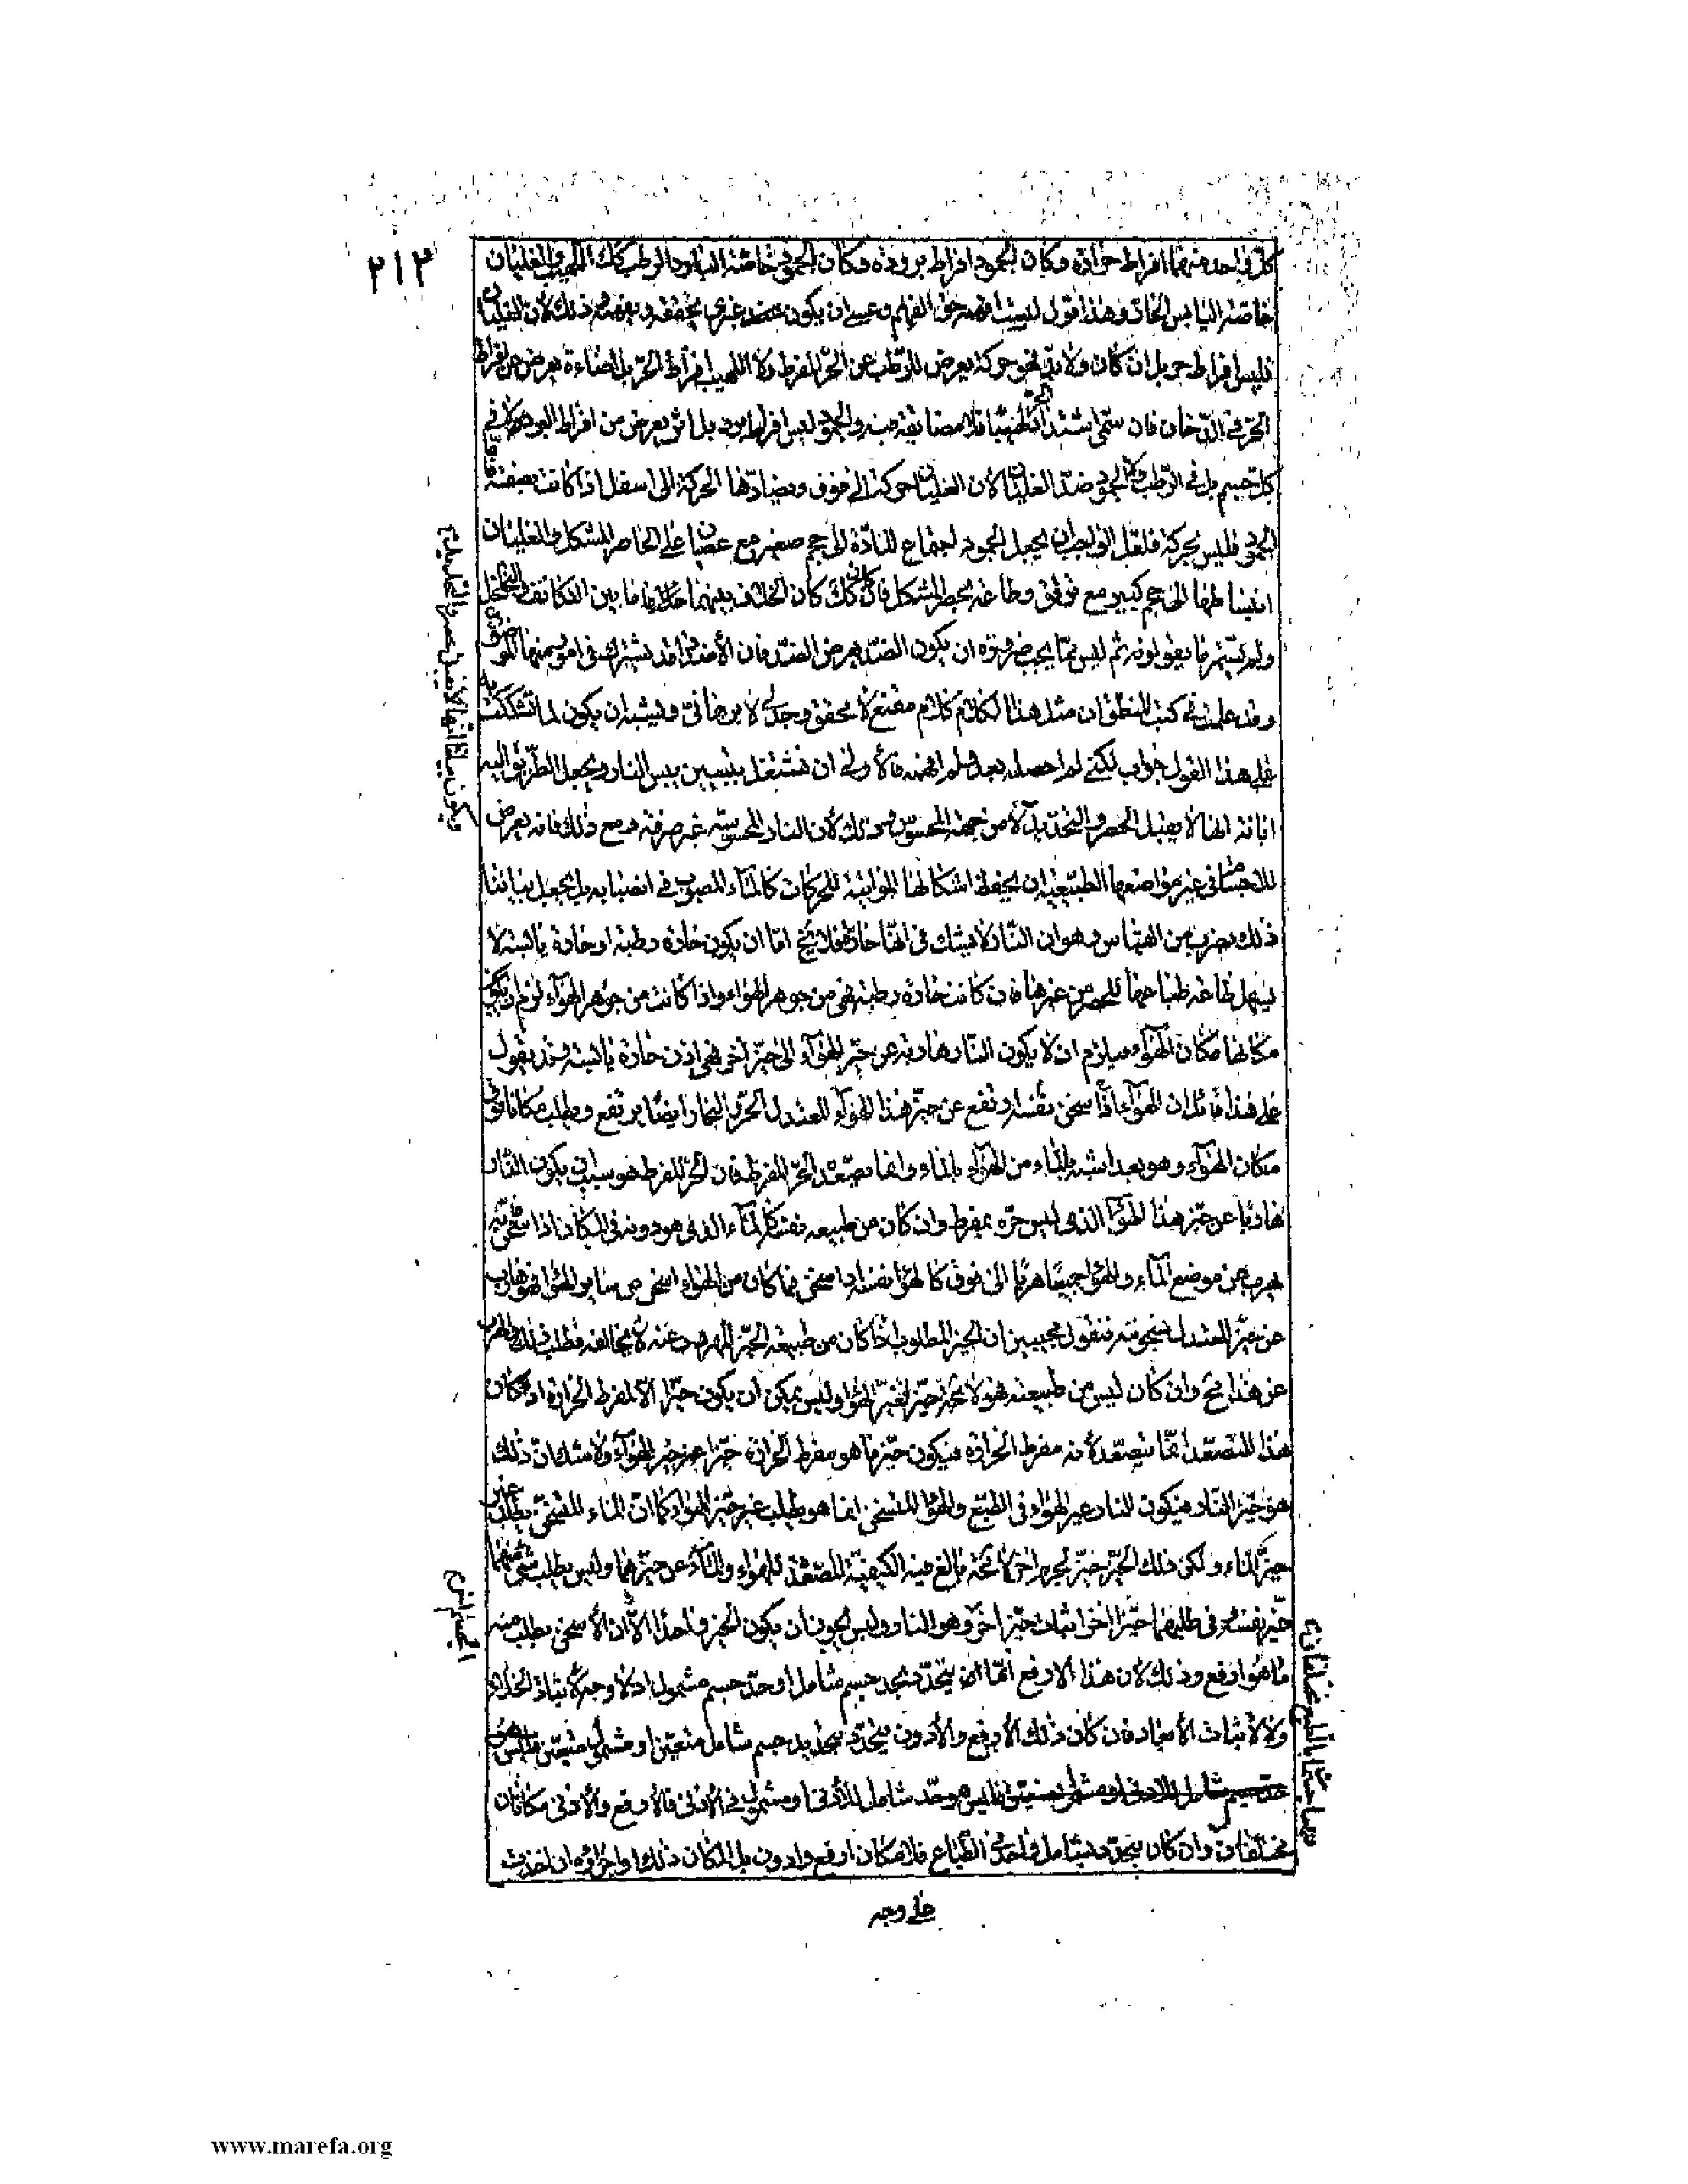 ٢١٣
كل واحد منهما افراط حرارة وكان الجمود افراط برودة وكان الجمود خاصة البارد الرطب كذلك اللهيب والغليان
خاصة اليابس الحار وهذا قول لست افهمه حق الفهم وعسى ان يكون عند غيرى يحققه ويفهمه وذلك لان الغليان
فليس افراط حر بل ان كان ولا بد فهو حركة يعرض للرطب عن الحر المفرط ولا اللهيب افراط الحر بل اضاءة يعرض عن افراط
الحر فى الدخان فان سمى اشتداد الحر لهيبا فلا مضايقة فيه والجمود ليس افراط برد بل اثر يعرض من افراط البرد لا فى
كل جسم بل فى الرطب ولا الجمود ضد الغليان لان الغليان حركة الى فوق ويضادها الحركة الى اسفل اذا كانت بصفته فاما
الجمود فليس بحركة فلعل الواجب ان يجعل الجمود اجتماع المادة الى حجم صغير مع عصيان على الحاصر المشكل والغليان
انبساطها الى حجم كبير مع ترقق وطاعة لحصر المشكل فان كان كذلك كان الخلاف بينهما خلاف ما بين التكاثف والتخلخل
ولم يستمر ما يقولونه ثم ليس مما يجب ضرورة ان يكون الضد يعرض للضد فان الاضداد قد يشترك فى امور منها
وقد علمت فى كتب المنطق ان مثل هذا الكلام كلام مقنع لا محقق وجدلى لا برهانى ويشبه ان يكون لما تشككت به
على هذا القول جواب لكنى لم احصله بعد ولم افهمه فالاولى ان نشتغل بتبيين يبس النار ويجعل الطريق اليه
ابانة انها لا يقبل الحصر والتحديد لا من جهة المحسوس وذلك لان النار المحسوسة غير صرفة ومع ذلك فانه يعرض
للاجسام فى غير مواضعها الطبيعية ان يحفظ اشكالها المواتية للحركات كالماء المصبوب فى انصبابه بل يجعل بياننا
ذلك بضرب من القياس وهو ان النار لا يشك فى انها حارة فلا يخ اما ان يكون حارة رطبة او حارة يابسة لا
يسهل طاعة طباعها للحصر من غيرها فان كانت حارة رطبة فهى من جوهر الهواء واذا كانت من جوهر الهواء لزم ان يكون
مكانها مكان الهواء ويلزم ان لا يكون النار هاربة عن حيز الهواء الى حيز اخر فهى اذن حارة يابسة وقد يقول
على هذا قائل ان الهواء اذا سخن نفسه ارتفع عن حيز هذا الهواء المعتدل الحر والبخار ايضا يرتفع ويطلب مكانا فوق
مكان الهواء وهو بعد اشبه بالماء من الهواء بالماء وانما يصعد الحر المفرط فان الحر المفرط هو سبب ان يكون النار
هاربا عن حيز هذا الهواء الذى ليس حره بمفرط وان كان من طبيعته نفسه كالماء الذى هو دونه فى المكان اذا سخن فانه
يهرب عن موضع الماء والهواء جميعا هربا الى فوق كالهواء نفسه اذا سخن فما كان من الهواء اسخن من ساير الهواء فهو هارب
عن حيز المعتدل سخونته فنقول مجيبين ان الحيز المطلوب اذا كان من طبيعة الحيز المهروب عنه لا يخالفه فطلب ذلك والهرب
عن هذا مح وان كان ليس من طبيعته فهو لا محة حيز لغير الهواء وليس يمكن ان يكون حيزا الا لمفرط الحرارة اذ كان
هذا المتصعد انما يتصعد لانه مفرط الحرارة فيكون حيز ما هو مفرط الحرارة حيزا غير حيز الهواء ولا شك ان ذلك
هو حيز النار فيكون للنار غير الهواء فى الطبع والهواء المتسخن انما هو يطلب غير حيز الهواء كما ان الماء المتسخن يطلب غير
حيز الماء ولكن ذلك الحيز حيز لجرم اخر لا محة بالغ فيه الكيفية المصعدة للهواء والماء عن حيزهما وليس يطلب شئ منهما
حيز نفسه وفى طلبهما حيزا اخر اثبات حيز اخر وهو النار وليس يجوز ان يكون الحيز واحدا الا ان الاسخن يطلب منه
ما هو ارفع وذلك لان هذا الارفع اما ان يتحدد بحد جسم شامل او حد جسم مشمول اذ لا وجه لاثبات الخلاء
ولا لاثبات الابعاد فان كان ذلك الارفع والادون يتحدد بتحديد جسم شامل متعين او مشمول متعين فليس هو
حد شامل للادنى او مشمول فى الادنى فالارفع والادنى مكانان
مختلفان وان كان يتحدد بشامل واحد فى الطباع فلا مكان ارفع وادون بل المكان ذلك او اجزاؤه ان اخذت
على وجه
www.marefa.org